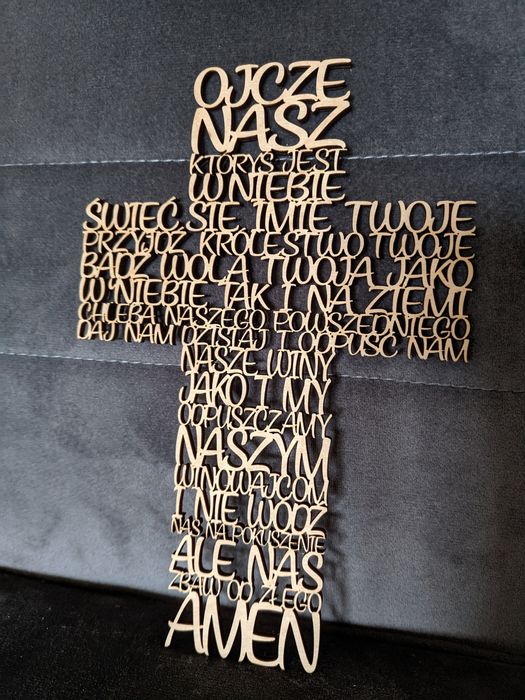 OJCZE
NASZ
KTÓRYŚ JEST
W NIEBIE
ŚWIĘĆ SIĘ IMIĘ TWOJE
PRZYJDŹ KRÓLESTWO TWOJE
BĄDŹ WOLA TWOJA JAKO
W NIEBIE TAK I NA ZIEMI
CHLEBA NASZEGO POWSZEDNIEGO
DAJ NAM DZISIAJ I ODPUŚĆ NAM
NASZE WINY
JAKO I MY
ODPUSZCZAMY
NASZYM
WINOWAJCOM
I NIE WÓDŹ
NAS NA POKUSZENIE
ALE NAS
ZBAW ODE ZŁEGO
AMEN